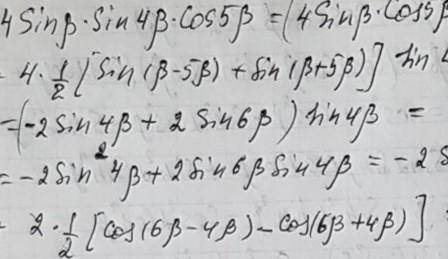 4 Sinβ·Sin 4β·Cos5β = (4 Sinβ·Cos5β
4·1/2 [Sin(β-5β) + Sin(β+5β)] Sin 4
=(-2 Sin 4β + 2 Sin6β) Sin4β =
=-2Sin²4β+2Sin6βSin4β = -2 S
2·1/2 [Cos(6β-4β)-Cos(6β+4β)]